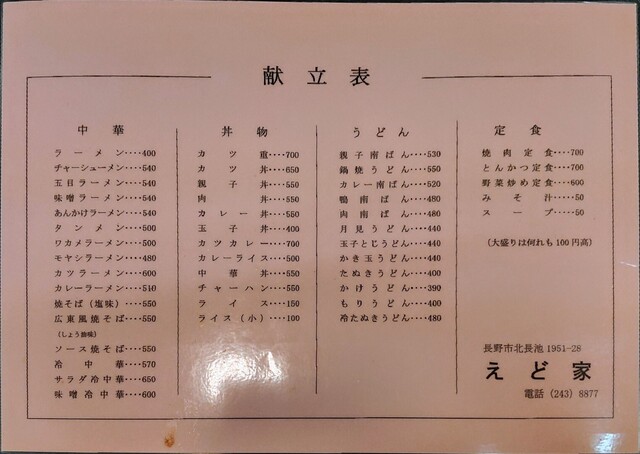 献立表
中華
ラーメン････400
チャーシューメン････540
五目ラーメン････540
味噌ラーメン････540
あんかけラーメン････540
タンメン････500
ワカメラーメン････500
モヤシラーメン････480
カツラーメン････600
カレーラーメン････510
焼そば（塩味）････550
広東風焼そば････550
(しょう油味)
ソース焼そば････550
冷中華････570
サラダ冷中華････650
味噌冷中華････600
丼物
カツ重････700
カツ丼････650
親子丼････550
肉丼････550
カレー丼････550
玉子丼････400
カツカレー････700
カレーライス････500
中華丼････550
チャーハン････550
ライス････150
ライス（小）････100
うどん
親子南ばん････530
鍋焼うどん････550
カレー南ばん････520
鴨南ばん････480
肉南ばん････480
月見うどん････440
玉子とじうどん････440
かき玉うどん････440
たぬきうどん････400
かけうどん････390
もりうどん････400
冷たぬきうどん････480
定食
焼肉定食････700
とんかつ定食････700
野菜炒め定食････600
みそ汁････50
スープ････50
（大盛りは何れも100円高）
長野市北長池1951-28
えど家
電話（243）8877